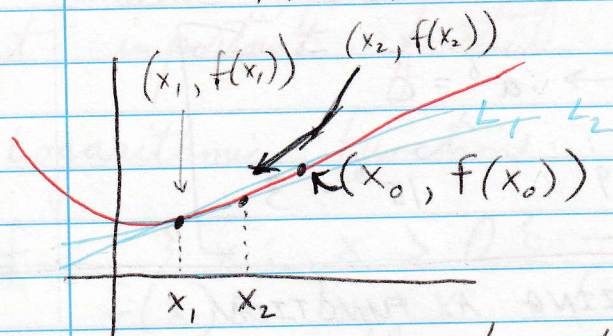 (x₂, f(x₂))
(x₁, f(x₁))
L₁ L₂
(x₀, f(x₀))
x₁ x₂